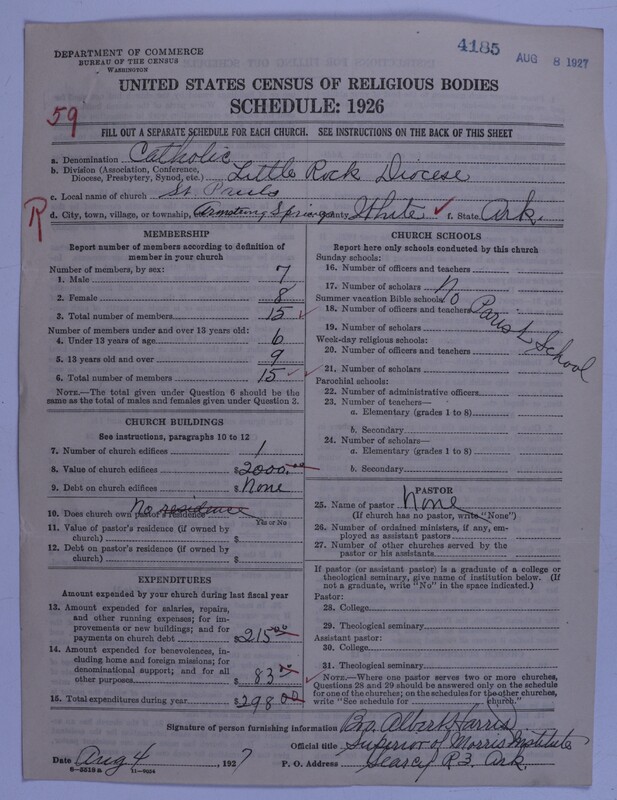 DEPARTMENT OF COMMERCE
BUREAU OF THE CENSUS
WASHINGTON
4185
AUG 8 1927
UNITED STATES CENSUS OF RELIGIOUS BODIES
SCHEDULE: 1926
59
FILL OUT A SEPARATE SCHEDULE FOR EACH CHURCH. SEE INSTRUCTIONS ON THE BACK OF THIS SHEET
a. Denomination Catholic
b. Division (Association, Conference, Diocese, Presbytery, Synod, etc.) Little Rock Diocese
c. Local name of church St Pauls
R
d. City, town, village, or township, Armstrong Springs County White ✓ f. State Ark.
MEMBERSHIP
Report number of members according to definition of member in your church
Number of members, by sex:
1. Male 7
2. Female 8
3. Total number of members 15
Number of members under and over 13 years old:
4. Under 13 years of age 6
5. 13 years old and over 9
6. Total number of members 15
NOTE.—The total given under Question 6 should be the same as the total of males and females given under Question 3.
CHURCH BUILDINGS
See instructions, paragraphs 10 to 12
7. Number of church edifices 1
8. Value of church edifices $2000.00
9. Debt on church edifices $ None
10. Does church own pastor's residence No residence
Yes or No
11. Value of pastor's residence (if owned by church) $
12. Debt on pastor's residence (if owned by church) $
EXPENDITURES
Amount expended by your church during last fiscal year
13. Amount expended for salaries, repairs, and other running expenses; for improvements or new buildings; and for payments on church debt $215.00
14. Amount expended for benevolences, including home and foreign missions; for denominational support; and for all other purposes $83.00
15. Total expenditures during year $298.00
CHURCH SCHOOLS
Report here only schools conducted by this church
Sunday schools:
16. Number of officers and teachers
17. Number of scholars
Summer vacation Bible schools:
18. Number of officers and teachers
19. Number of scholars
No Parish School
Week-day religious schools:
20. Number of officers and teachers
21. Number of scholars
Parochial schools:
22. Number of administrative officers
23. Number of teachers—
a. Elementary (grades 1 to 8)
b. Secondary
24. Number of scholars—
a. Elementary (grades 1 to 8)
b. Secondary
PASTOR
25. Name of pastor None
(If church has no pastor, write "None")
26. Number of ordained ministers, if any, employed as assistant pastors
27. Number of other churches served by the pastor or his assistants
If pastor (or assistant pastor) is a graduate of a college or theological seminary, give name of institution below. (If not a graduate, write "No" in the space indicated.)
Pastor:
28. College
29. Theological seminary
Assistant pastor:
30. College
31. Theological seminary
NOTE.—Where one pastor serves two or more churches, Questions 28 and 29 should be answered only on the schedule for one of the churches; on the schedules for the other churches, write "See schedule for church."
Signature of person furnishing information Bro. Albert Harris
Official title Superior of Morris Institute
Date Aug 4, 1927
P. O. Address Searcy R 3. Ark.
6—5518 a 11—9024